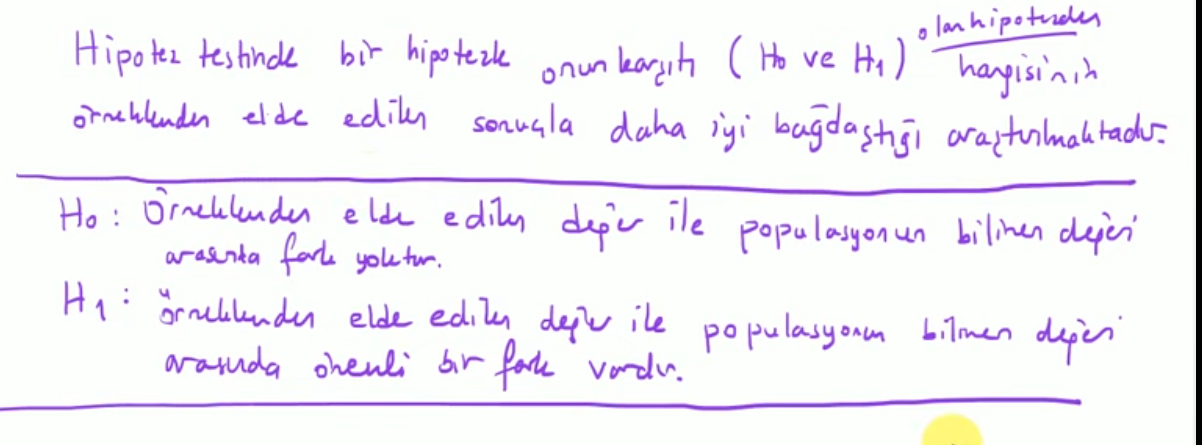 Hipotez testinde bir hipotezle onun karşıtı (H0 ve H1) olan hipotezden hangisinin
örneklemden elde edilen sonuçla daha iyi bağdaştığı araştırılmaktadır.
H0: Örneklemden elde edilen değer ile populasyonun bilinen değeri
arasında fark yoktur.
H1: örneklemden elde edilen değer ile populasyonun bilinen değeri
arasında önemli bir fark vardır.